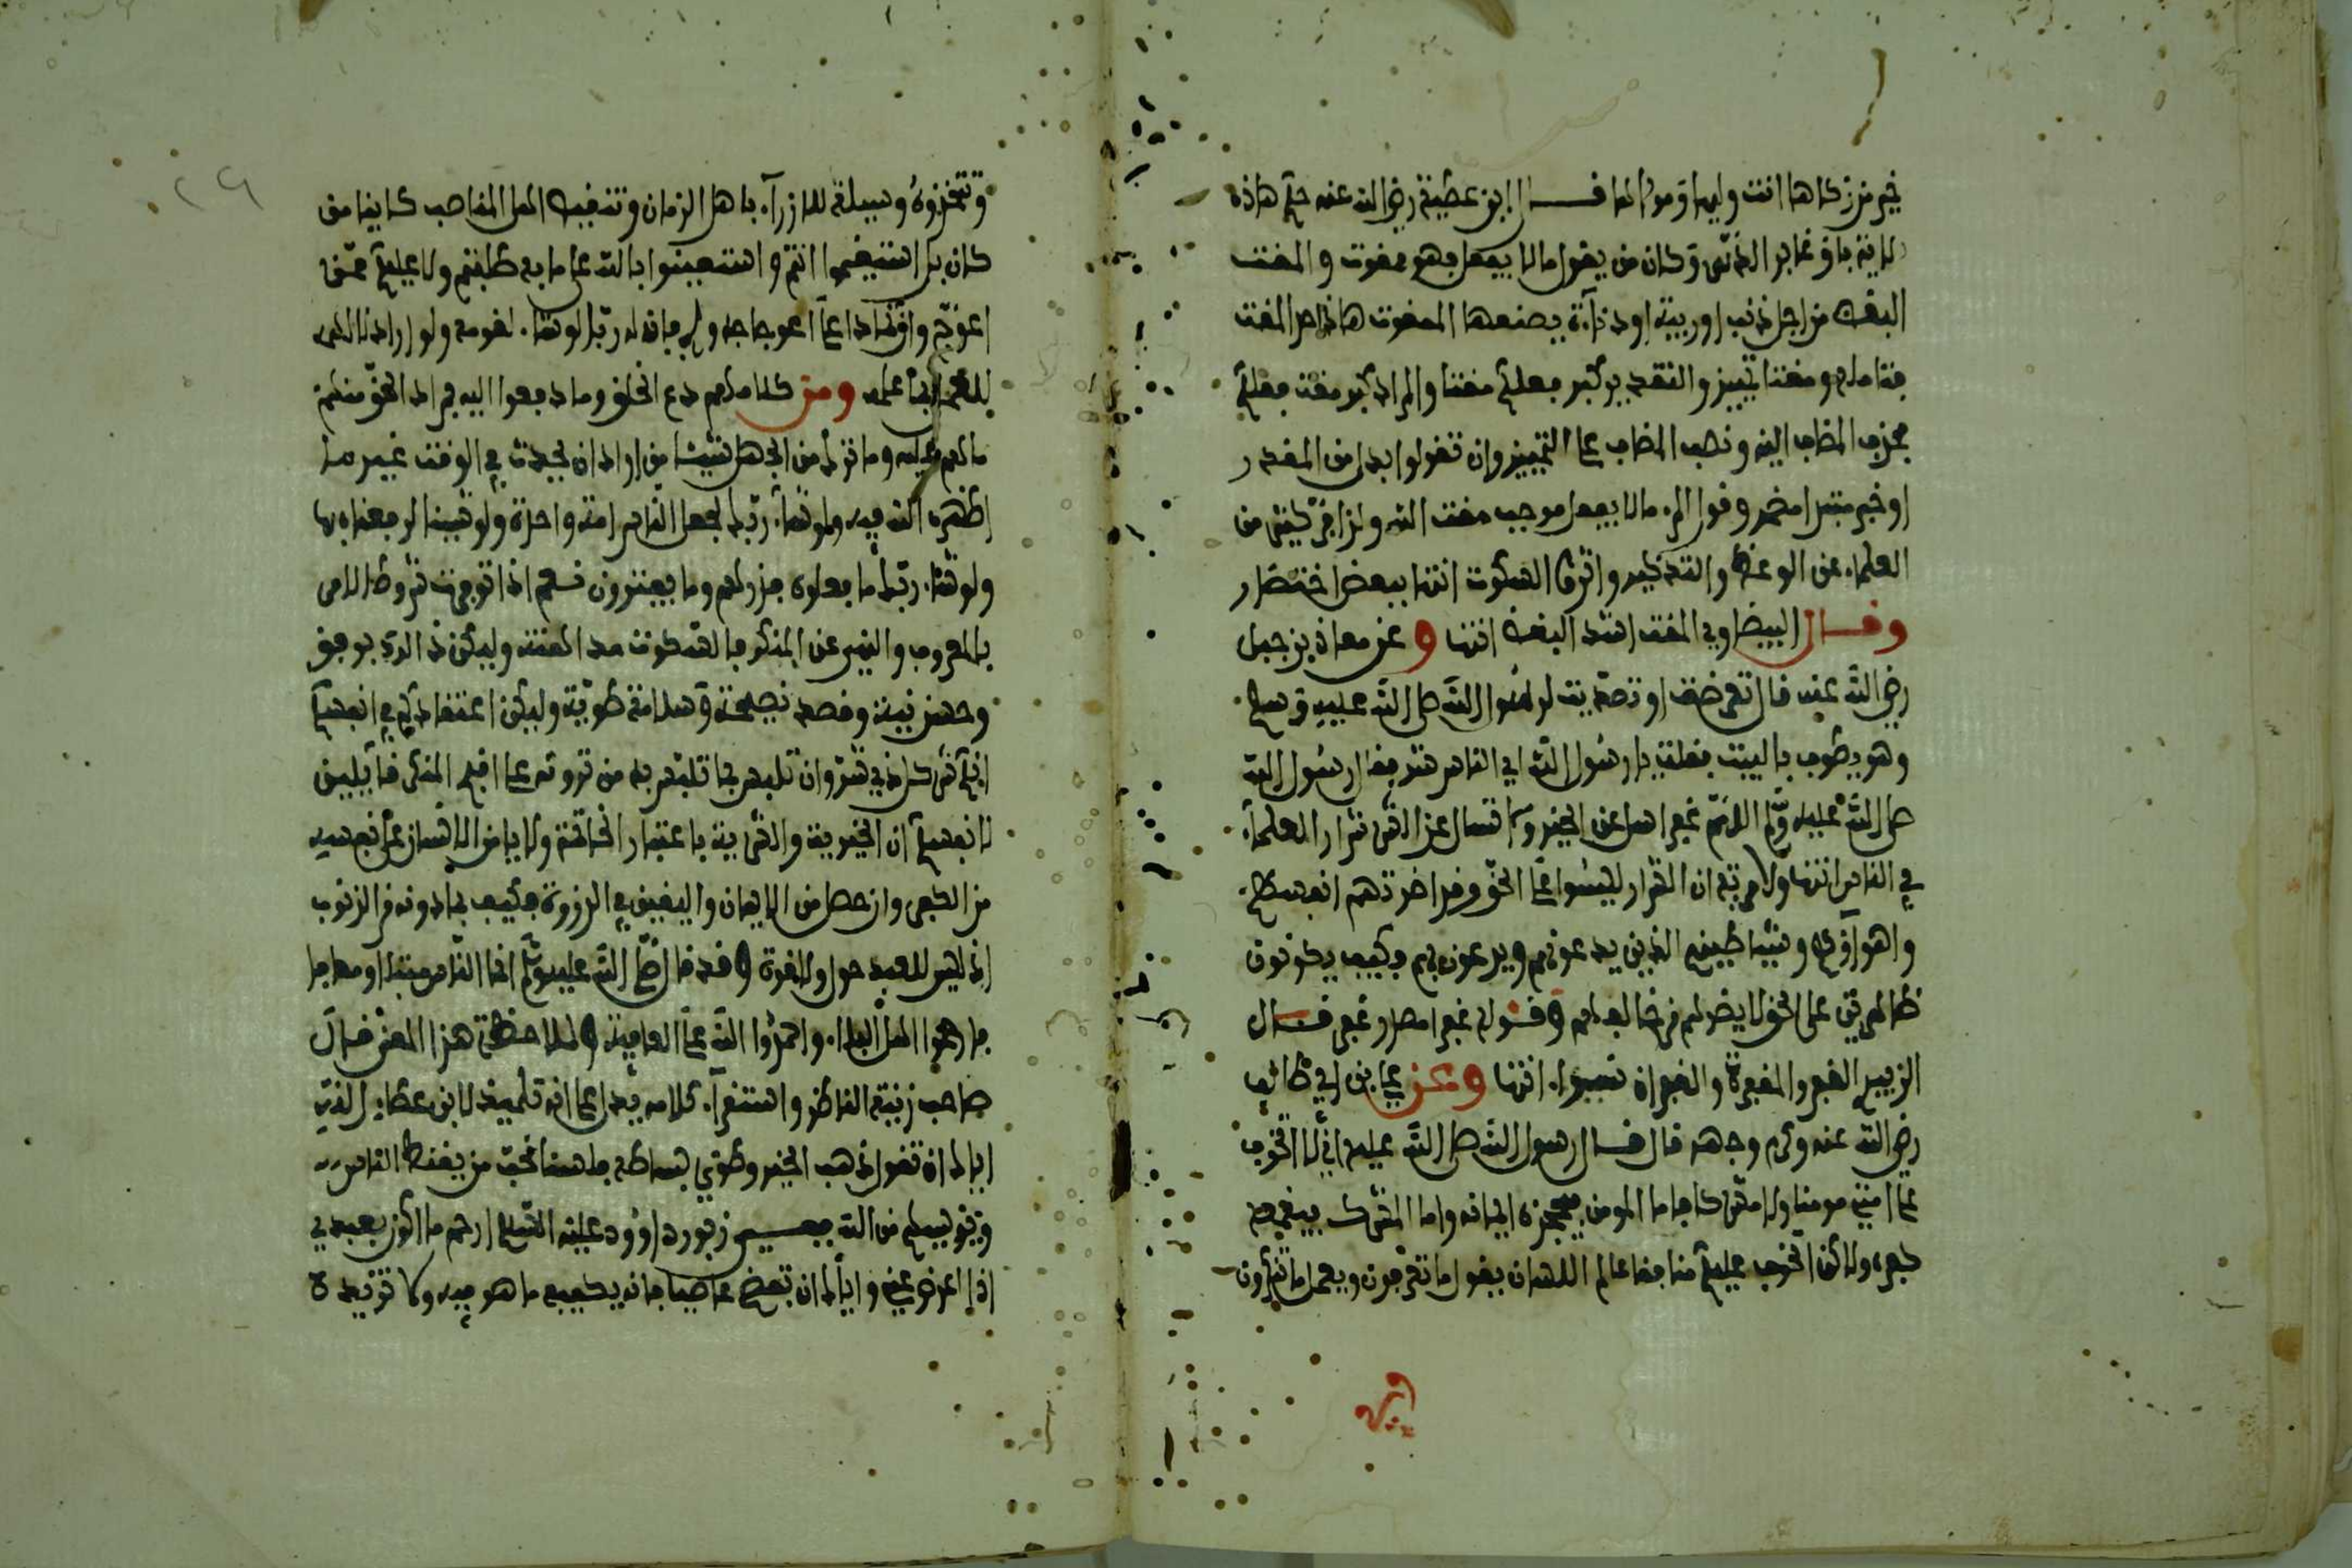 خير من زكاها انت وليها ومولاها قال ابن عطية رضي الله عنه حكم هاذه
الاية باق غابر الدهر وكان من يقول ما لا يفعل فهو ممقوت والمقت
البغض من اجل ذنب او ريبة او دناءة يصنعها الممقوت هاذا حد المقت
فتاملوه ومقتا تمييز والتقدير كبر فعلكم مقتا والمراد كبر مقت فعلكم
فحذف المضاف اليه ونصب المضاف على التمييز وان تقولوا بدل من المقدر
او خبر مبتدا مضمر وقول المرء ما لا يفعل موجب مقت الله ولذا فر كثير من
العلماء عن الوعظ والتذكير واثروا السكوت انتهى ببعض اختصار
وقال البيضاوي المقت اشد البغض انتهى وعن معاذ بن جبل
رضي الله عنه قال تعرضت او تصديت لرسول الله صلى الله عليه وسلم
وهو يطوف بالبيت فقلت يا رسول الله اي الناس شر فقال رسول الله
صلى الله عليه وسلم اللهم غفرا سل عن الخير ولا تسال عن الشر شرار العلماء
في الناس انتهى ولا مرية ان الشرار ليسوا على الحق وقد اضرتهم انفسهم
واهواؤهم وشياطينهم الذين يدعونهم ويدعون بهم فكيف يكونون
ظاهرين على الحق لا يضرهم من خالفهم وقوله غفرا مصدر غفر قال
الزبيدي الغفر والمغفرة والغفران سواء انتهى وعن علي بن ابي طالب
رضي الله عنه وكرم وجهه قال قال رسول الله صلى الله عليه اني لا اتخوف
على امتي مومنا ولا مشركا فاما المومن فيحجزه ايمانه واما المشرك فيقمعه
كفره ولاكن اتخوف عليكم منافقا عالم اللسان يقول ما تعرفون ويعمل ما تنكرون
وتتخذوه وسيلة للازراء باهل الزمان وتنقيص اهل المناصب كاينا من
كان بل استقيموا انتم واستعينوا بالله على ما به طلبتم ولا عليكم ممن
اعوج واقتداء على اعوجاجه فانه لو شاء ربك لقومه ولو اراد
ومن كلامهم دع الخلق وما دفعوا اليه مراد الحق منهم
ما هم عليه وما ترك من الجهل شيئا من اراد ان يحدث في الوقت غير ما
اظهره الله فيه ولو شاء ربك لجعل الناس امة واحدة ولو شينا لرفعناه بها
ولو شاء ربك ما فعلوه فذرهم وما يفترون نعم اذا توفرت شروط الامر
بالمعروف والنهي عن المنكر فالسكوت هو المقت وليكن ذالك برفق
وحسن نية وقصد نصيحة وسلامة طوية وليكن اعتقادكم في انفسكم
انكم شر كل ذي شر وان تلبس بما تلبس به من ترونه على اقبح المنكر فايلين
لانفسكم ان الخيرية والشرية باعتبار الخاتمة ولا يامن الانسان على نفسه
من الكفر وان حصل من الايمان واليقين في الذروة فكيف بما دونه من الذنوب
اذ ليس للعبد حول ولا قوة وقد قال صلى الله عليه وسلم انما الناس مبتلى ومعافى
فارحموا اهل البلاء واحمدوا الله على العافية ولملاحظة هذا المعنى قال
صاحب زينة الناظر واستقراء كلامه يدل على انه تلميذ لابن عطاء الله
اياك ان تقول ذهب الخير وطوي بساطه فلسنا نحب من يقنط الناس
ويؤيسهم من الله ففي زبور داوود عليه السلام ارحم ما اكون بعبدي
اذا اعرض عني واياك ان تبغض عاصيا فانه يكفيه ما هو فيه ولا تزيده